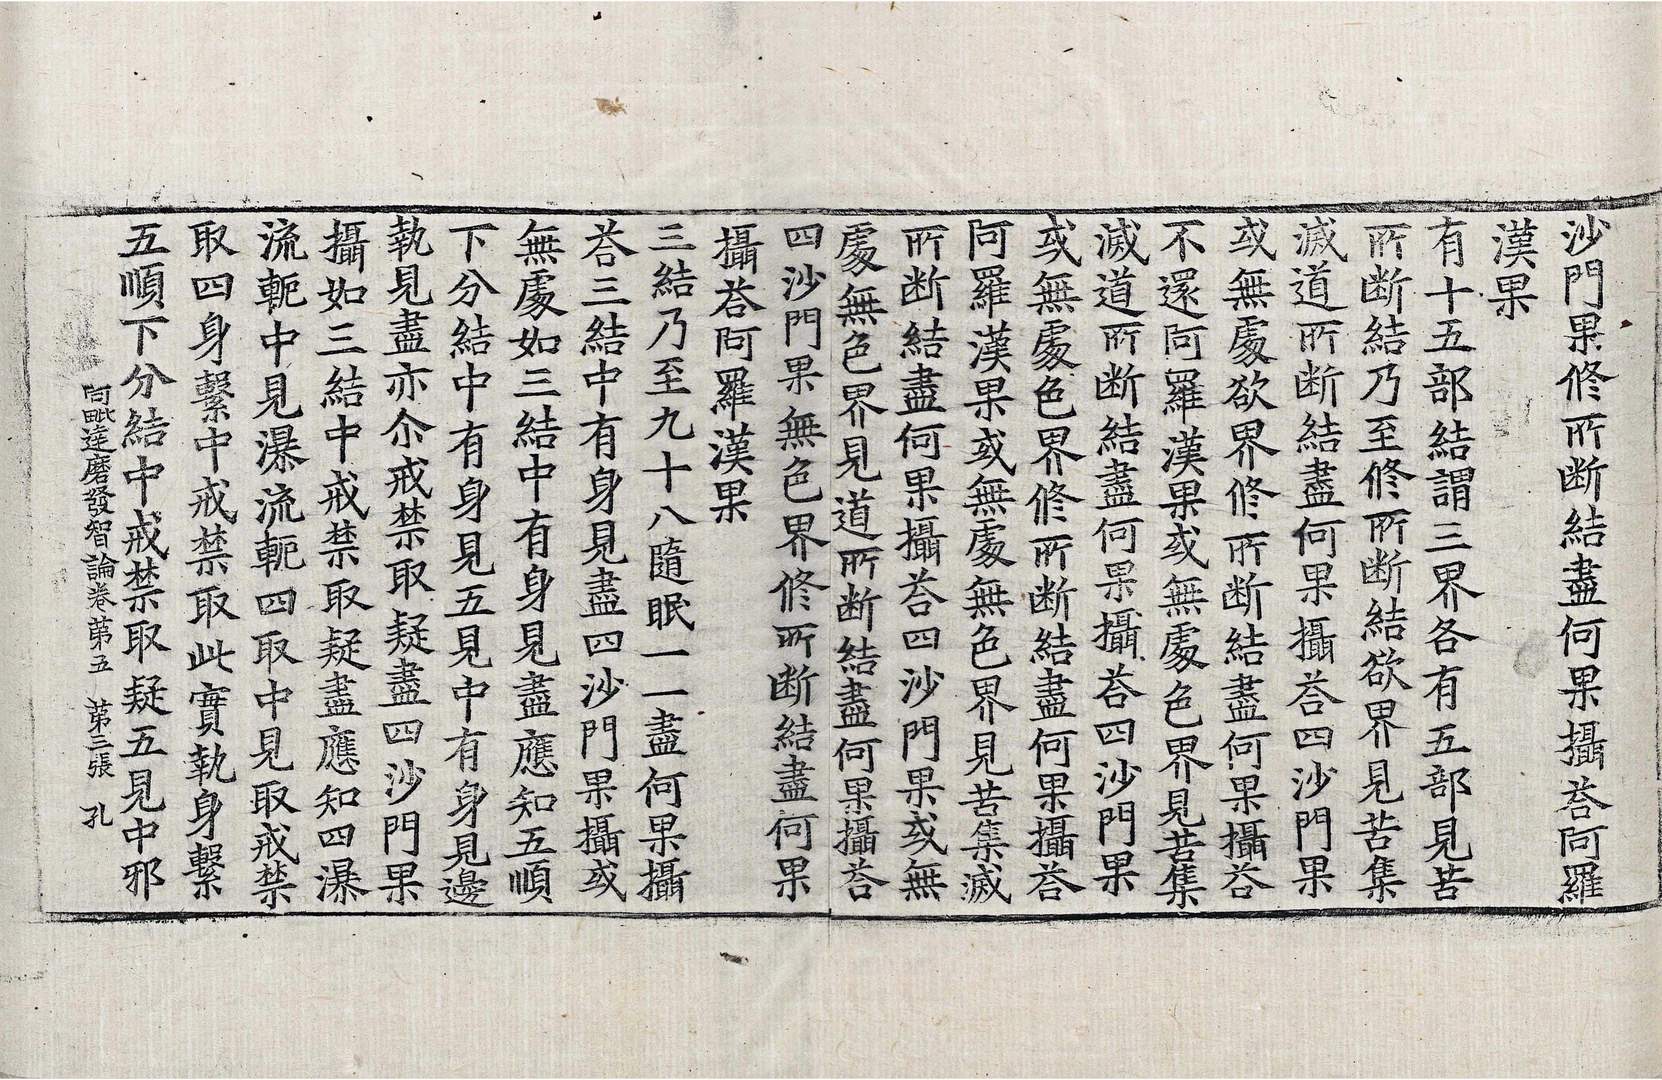 沙門果修所断結盡何果攝荅阿羅
漢果
有十五部結謂三界各有五部見苦
所断結乃至修所断結欲界見苦集
滅道所断結盡何果攝荅四沙門果
或無處欲界修所断結盡何果攝荅
不還阿羅漢果或無處色界見苦集
滅道所断結盡何果攝荅四沙門果
或無處色界修所断結盡何果攝荅
阿羅漢果或無處無色界見苦集滅
所断結盡何果攝荅四沙門果或無
處無色界見道所断結盡何果攝荅
四沙門果無色界修所断結盡何果
攝荅阿羅漢果
三結乃至九十八隨眠一一盡何果攝
荅三結中有身見盡四沙門果攝或
無處如三結中有身見盡應知五順
下分結中有身見五見中有身見邊
執見盡亦尒戒禁取疑盡四沙門果
攝如三結中戒禁取疑盡應知四瀑
流軛中見瀑流軛四取中見取戒禁
取四身繫中戒禁取此實執身繫
五順下分結中戒禁取疑五見中邪
阿毗達磨發智論卷第五 第三張 孔